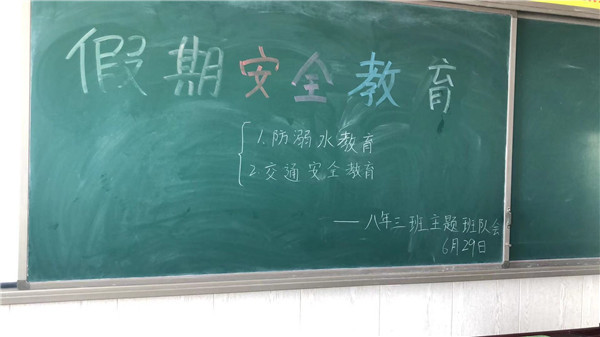 假期安全教育
1.防溺水教育
2.交通安全教育
——八年三班主题班队会
6月29日